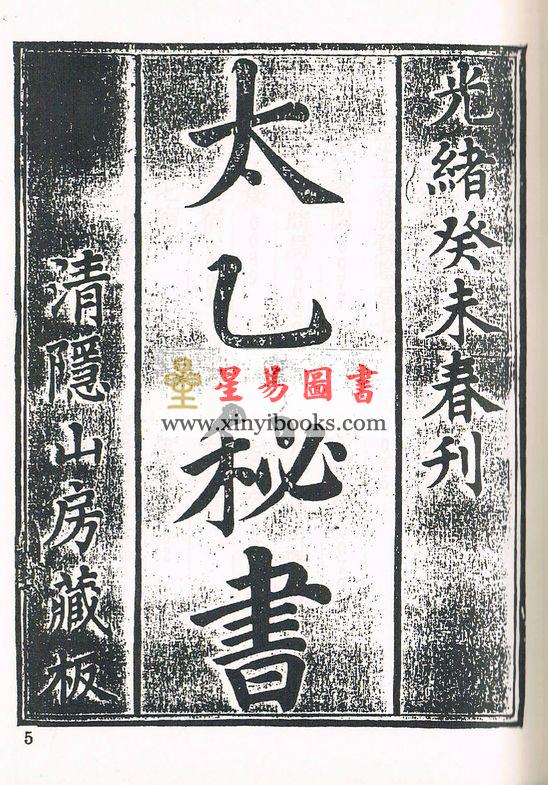 光緒癸未春刊
太乙秘書
清隱山房藏板
星易圖書
www.xinyibooks.com
5